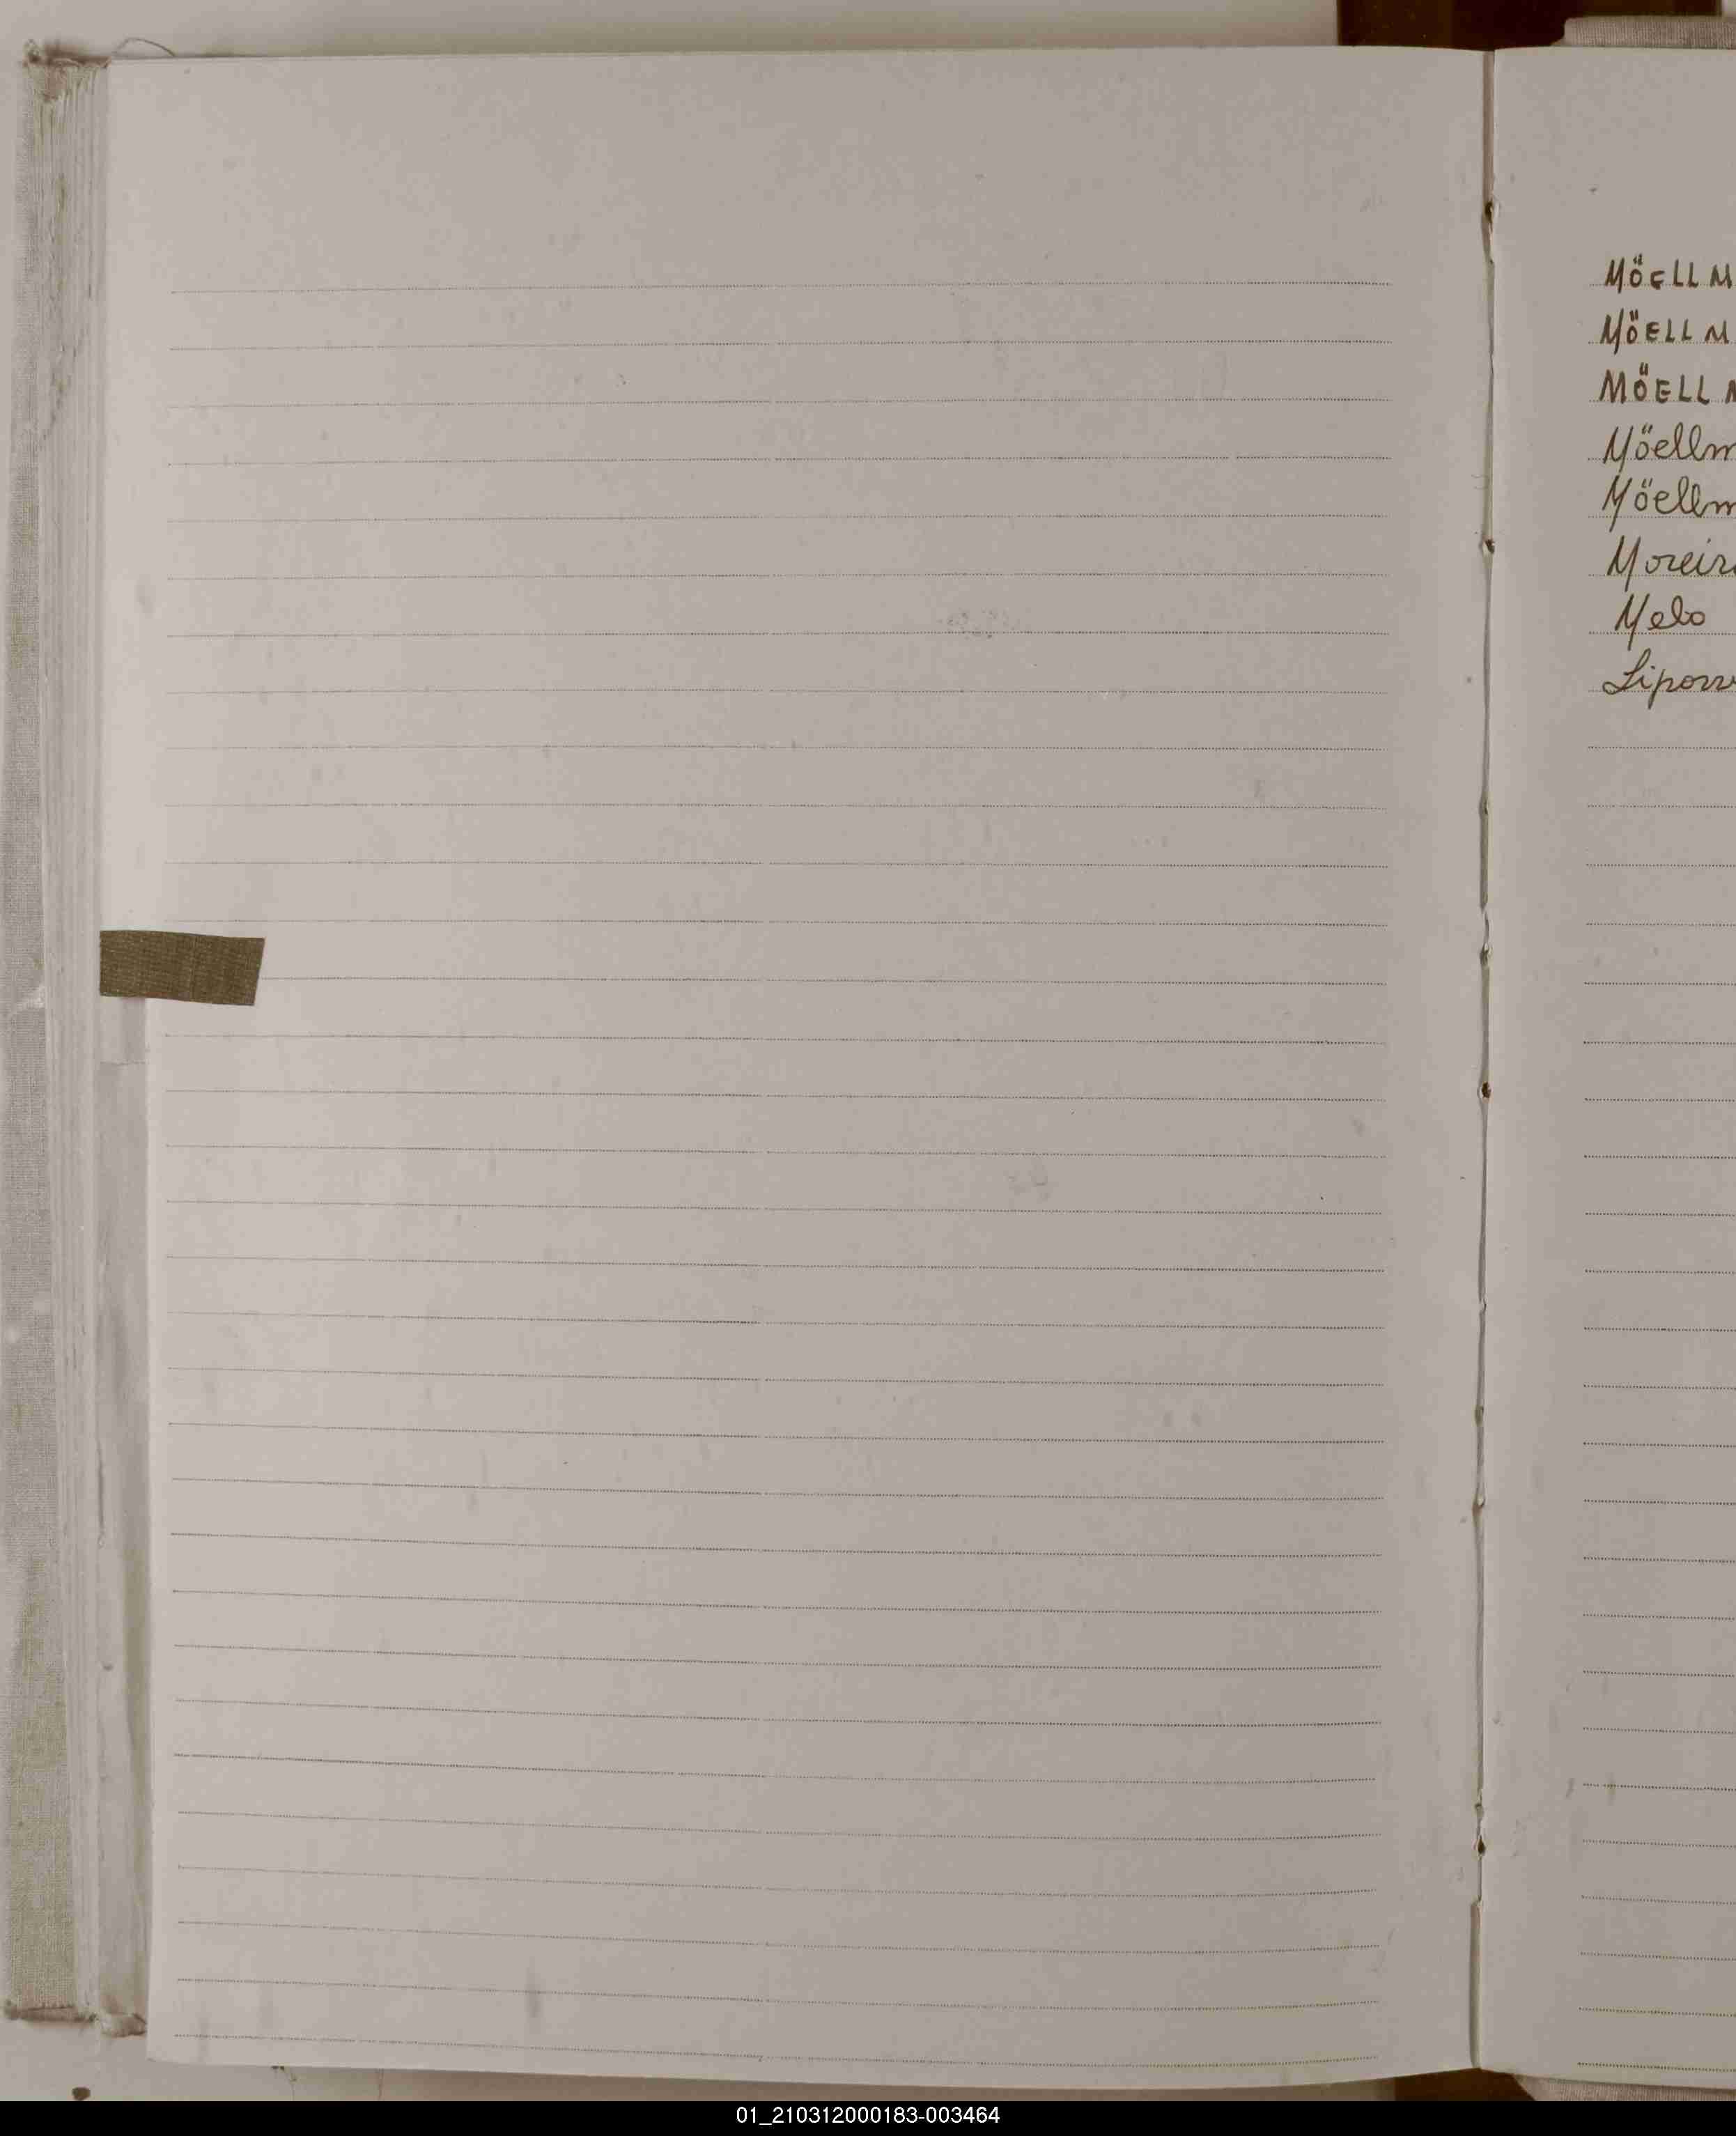 MÖELLM
MÖELLM
MÖELLM
Möellm
Möellm
Moreira
Melo
01_210312000183-003464